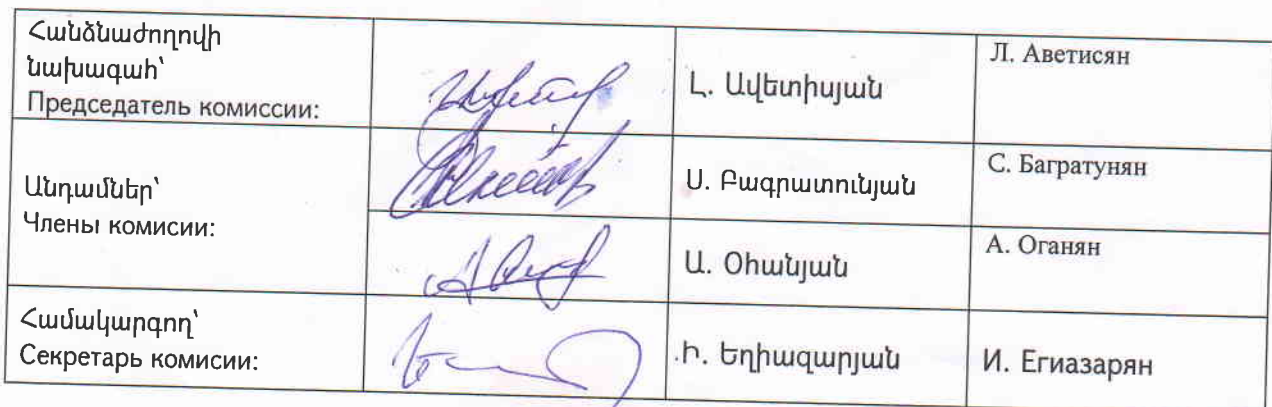 Հանձնաժողովի
նախագահ՝
Председатель комиссии:
Լ. Ավետիսյան
Л. Аветисян
Անդամներ՝
Члены комисии:
Ս. Բագրատունյան
С. Багратунян
Ա. Օհանյան
А. Оганян
Համակարգող՝
Секретарь комисии:
Ի. Եղիազարյան
И. Егиазарян